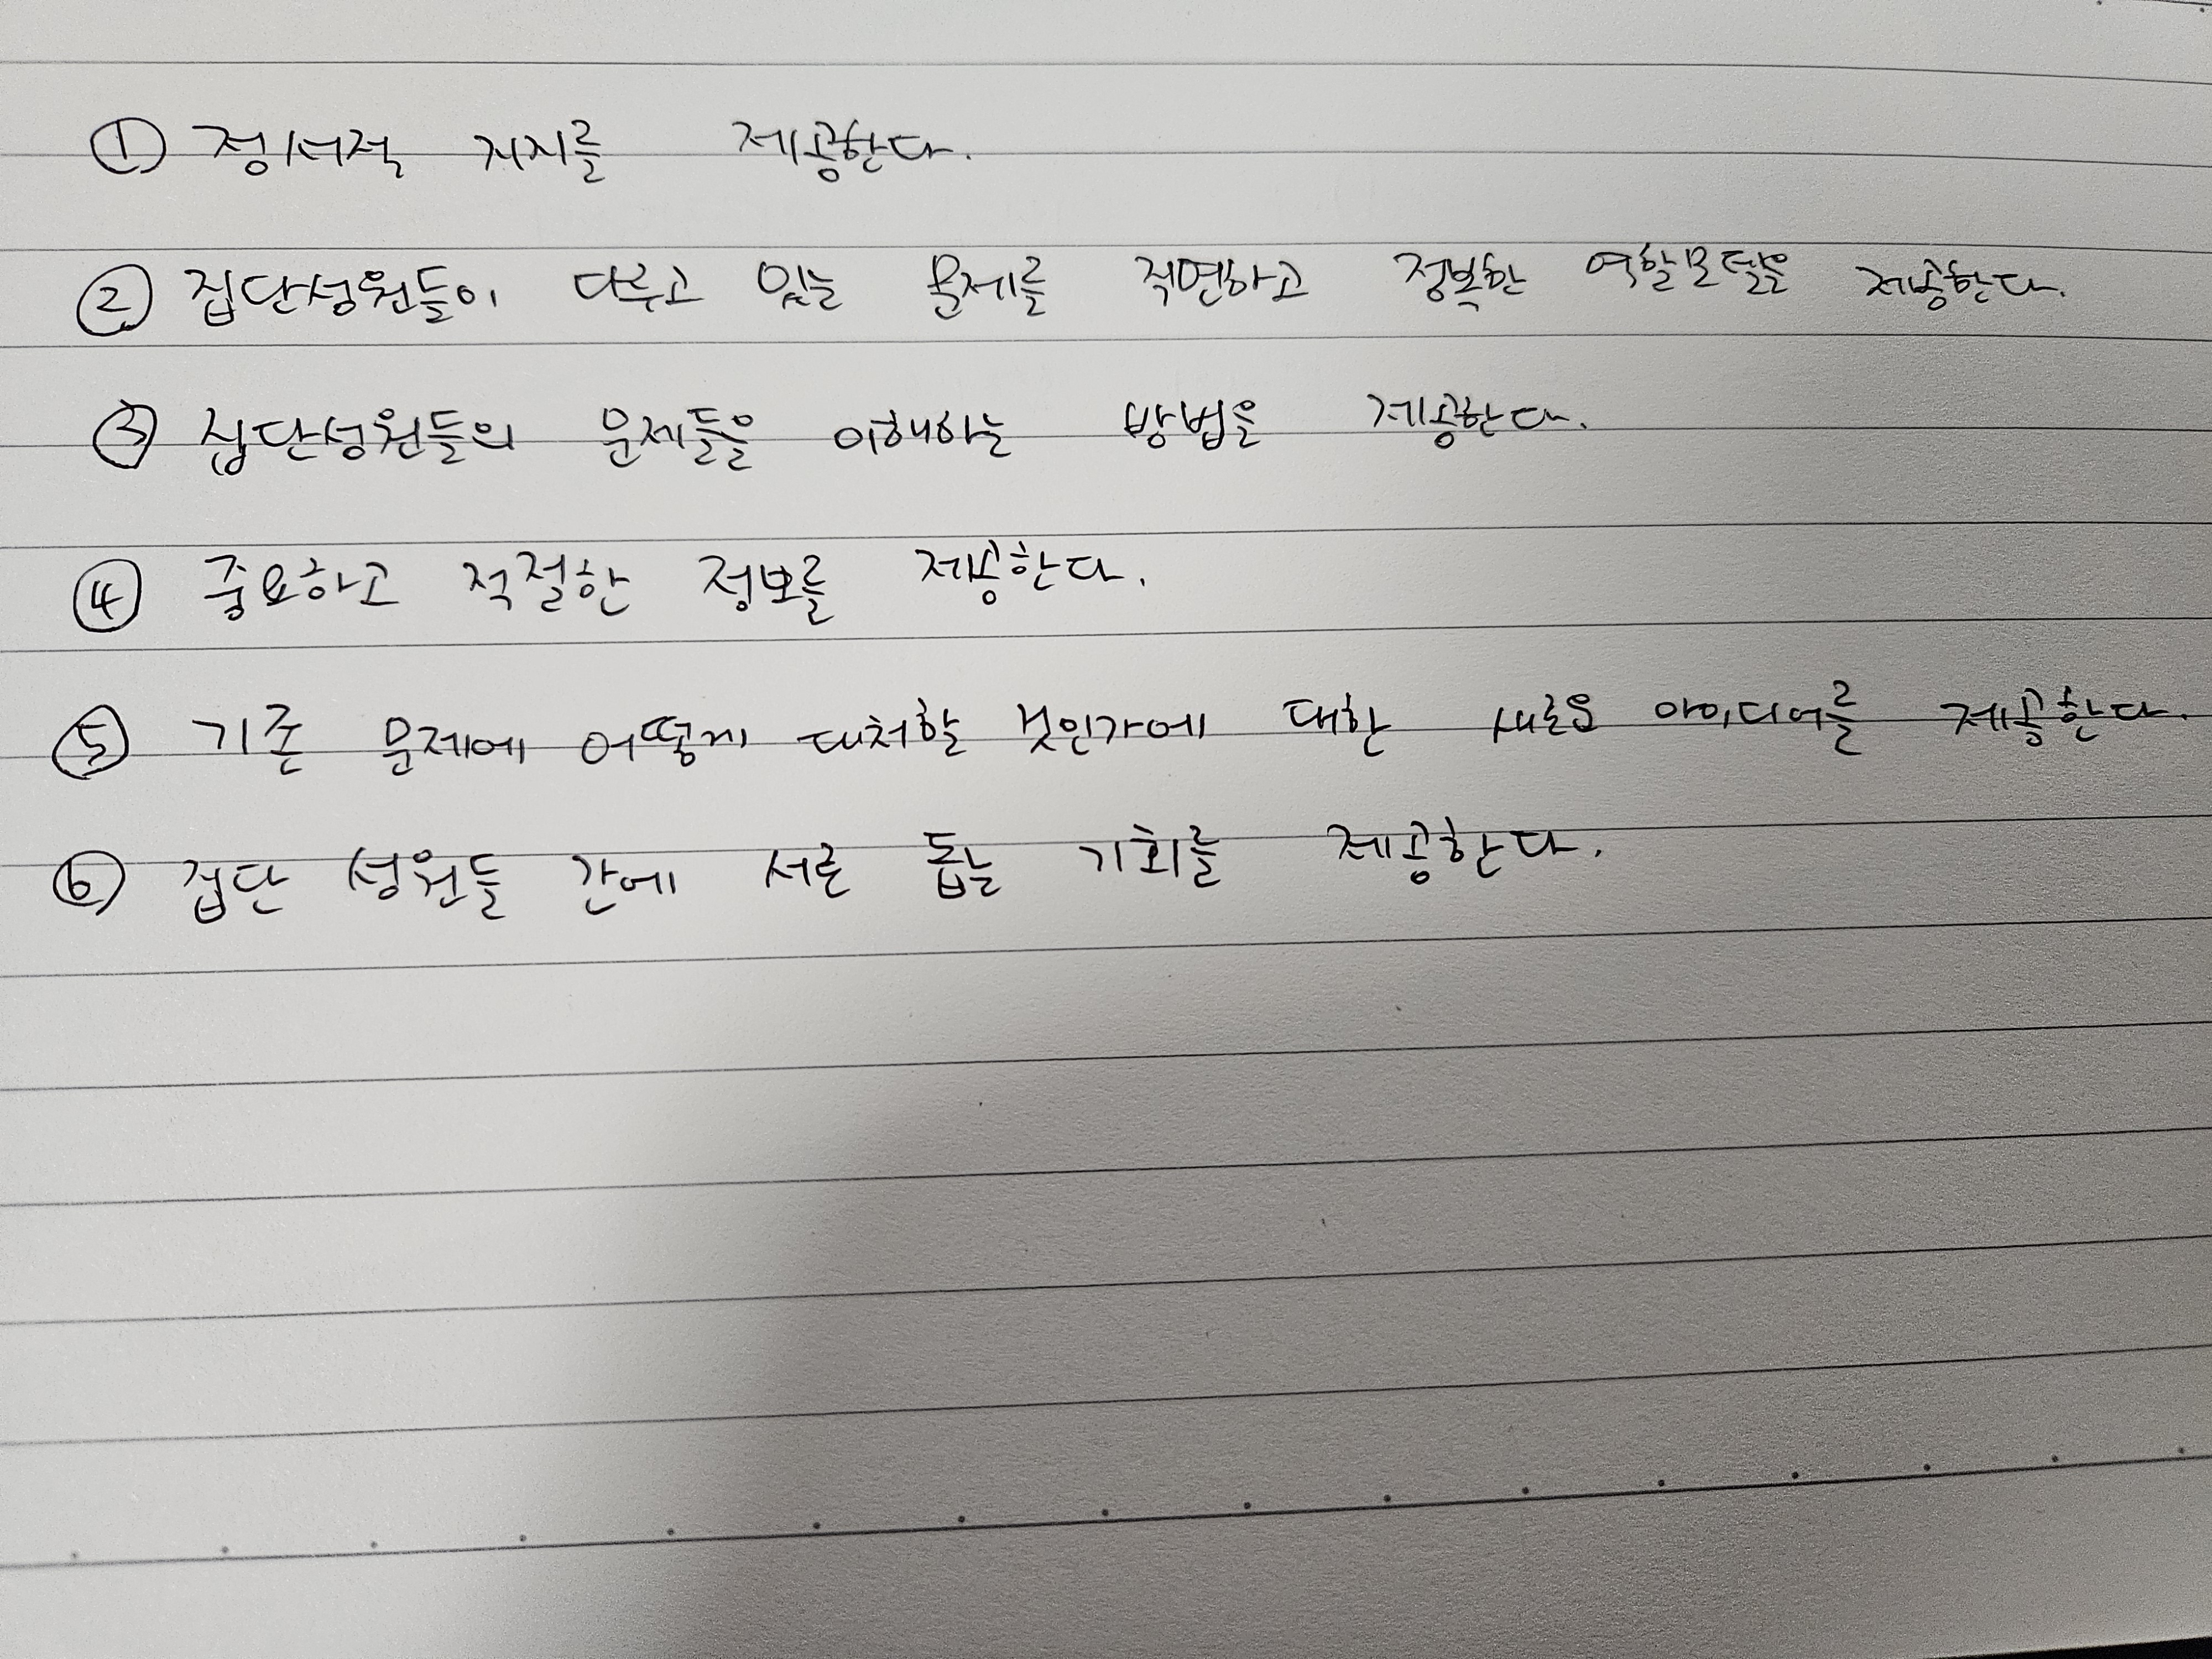 ① 정서적 지지를 제공한다.
② 집단성원들이 다루고 있는 문제를 직면하고 정복한 역할모델을 제공한다.
③ 집단성원들의 문제들을 이해하는 방법을 제공한다.
④ 중요하고 적절한 정보를 제공한다.
⑤ 기존 문제에 어떻게 대처할 것인가에 대한 새로운 아이디어를 제공한다.
⑥ 집단 성원들 간에 서로 돕는 기회를 제공한다.